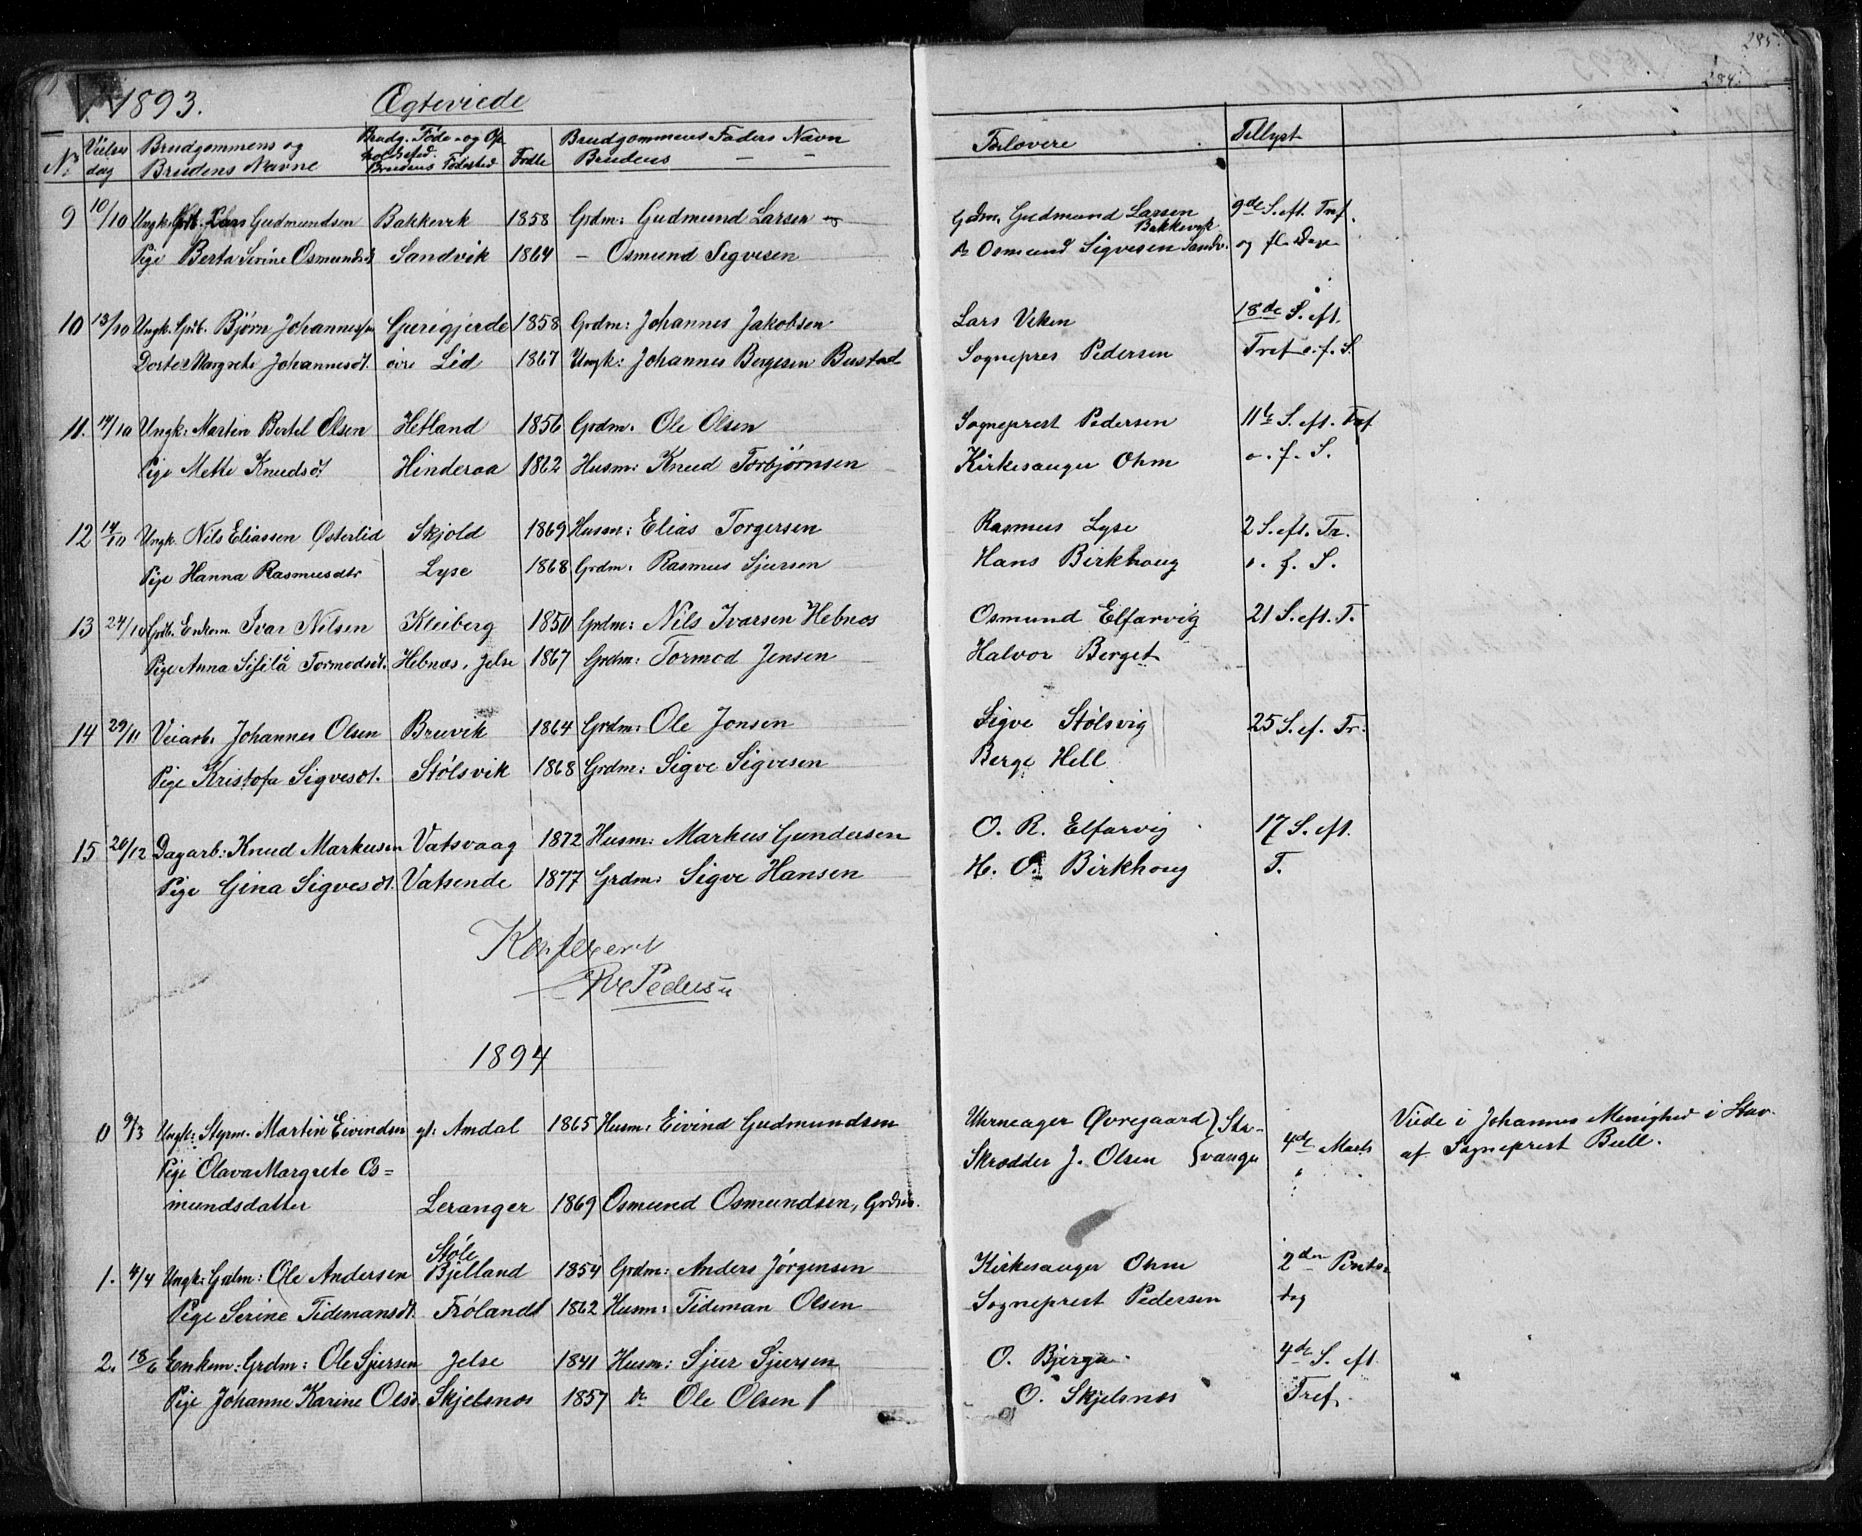 1893. Ægteviede 285.
284.
No Vielses dag Brudgommens og Brudens Navne Brudg. Føde- og Opholdssted. Brudens Fødested Fødte Brudgommens Faders Navn Brudens — — Forlovere Tillyst
9 10/10 Ungk. Lars Gudmundsen Bakkevik 1858 Grdm: Gudmund Larsen Grdm. Gudmund Larsen Bakkevik 9de S. eft. Tref.
Pige Berta Serine Osmundsd Sandvik 1864 — Osmund Sigvesen Osmund Sigvesen Sandv. og fl. Dage
10 13/10 Ungk. Grdb. Bjørn Johannessen Gjerigjerde 1858 Grdm: Johannes Jakobsen Lars Viken 18de S. eft.
Dorte Margrete Johannesdt. øvre Lid 1867 Ungk: Johannes Bergesen Bustad Sognepres Pedersen Tref o. f. S.
11. 14/10 Ungk: Martin Bertel Olsen Hetland 1856 Grdm. Ole Olsen Sogneprest Pedersen 11te S. eft. Tref
Pige Mette Knudsdt Hinderaa 1862 Husm: Knud Torbjørnsen Kirkesanger Ohm o. f. S.
12 14/10 Ungk. Nils Eliassen Østerlid Skjold 1869 Husm: Elias Torgersen Rasmus Lyse 2 S. eft. Tr.
Pige Hanna Rasmusdtr Lyse 1868 Grdm: Rasmus Sjursen Hans Birkhoug o. f. S.
13 24/10 Grdb. Enkem. Ivar Nilsen Kleiberg 1850 Grdm: Nils Ivarsen Hebnes Osmund Elfarvig 21 S. eft. T.
Pige Anna Sifila Tormodsdt. Hebnæs, Jelse 1867 Grdm: Tormod Jensen Halvor Berget
14 29/11 Veiarb. Johannes Olsen Bruvik 1864 Grdm: Ole Jonsen Sigve Stølsvig 25 S. ef. Tr.
Pige Kristofa Sigvesdt. Stølsvik 1868 Grdm: Sigve Sigvesen Berge Hell
15 20/12 Dagarb: Knud Markusen Vatsvaag 1872 Husm: Markus Gundersen O. R. Elfarvig 17 S. eft.
Pige Gina Sigvesdt. Vatsende 1877 Grdm: Sigve Hansen H. O. Birkhoug T.
Konfereret
Pedersen
1894
0 9/3 Ungk: Styrm. Martin Eivindsen gt. Amdal 1865 Husm: Eivind Gudmundsen Uhrmager Øvregaard } Sta- 4de Marts Viede i Johannes Menighed i Stav.
Pige Olava Margrete Os= Skrædder J. Olsen } vanger af Sogneprest Bull.
mundsdatter Leranger 1869 Osmund Osmundsen, Grdm.
1. 4/4 Ungk: Grdm: Ole Andersen Støle Bjelland 1854 Grdm: Anders Jørgensen Kirkesanger Ohm 2den Pintse
Pige Serine Tidemansdt. Frøland 1862 Husm: Tideman Olsen Sogneprest Pedersen dag
2. 18/6 Enkem: Grdm: Ole Sjursen Jelse 1841 Husm: Sjur Sjursen O. Bjerga 4de S. eft.
Pige Johanne Karine Olsd. Skjelsnos 1857 do Ole Olsen O. Skjelsnos Tref.